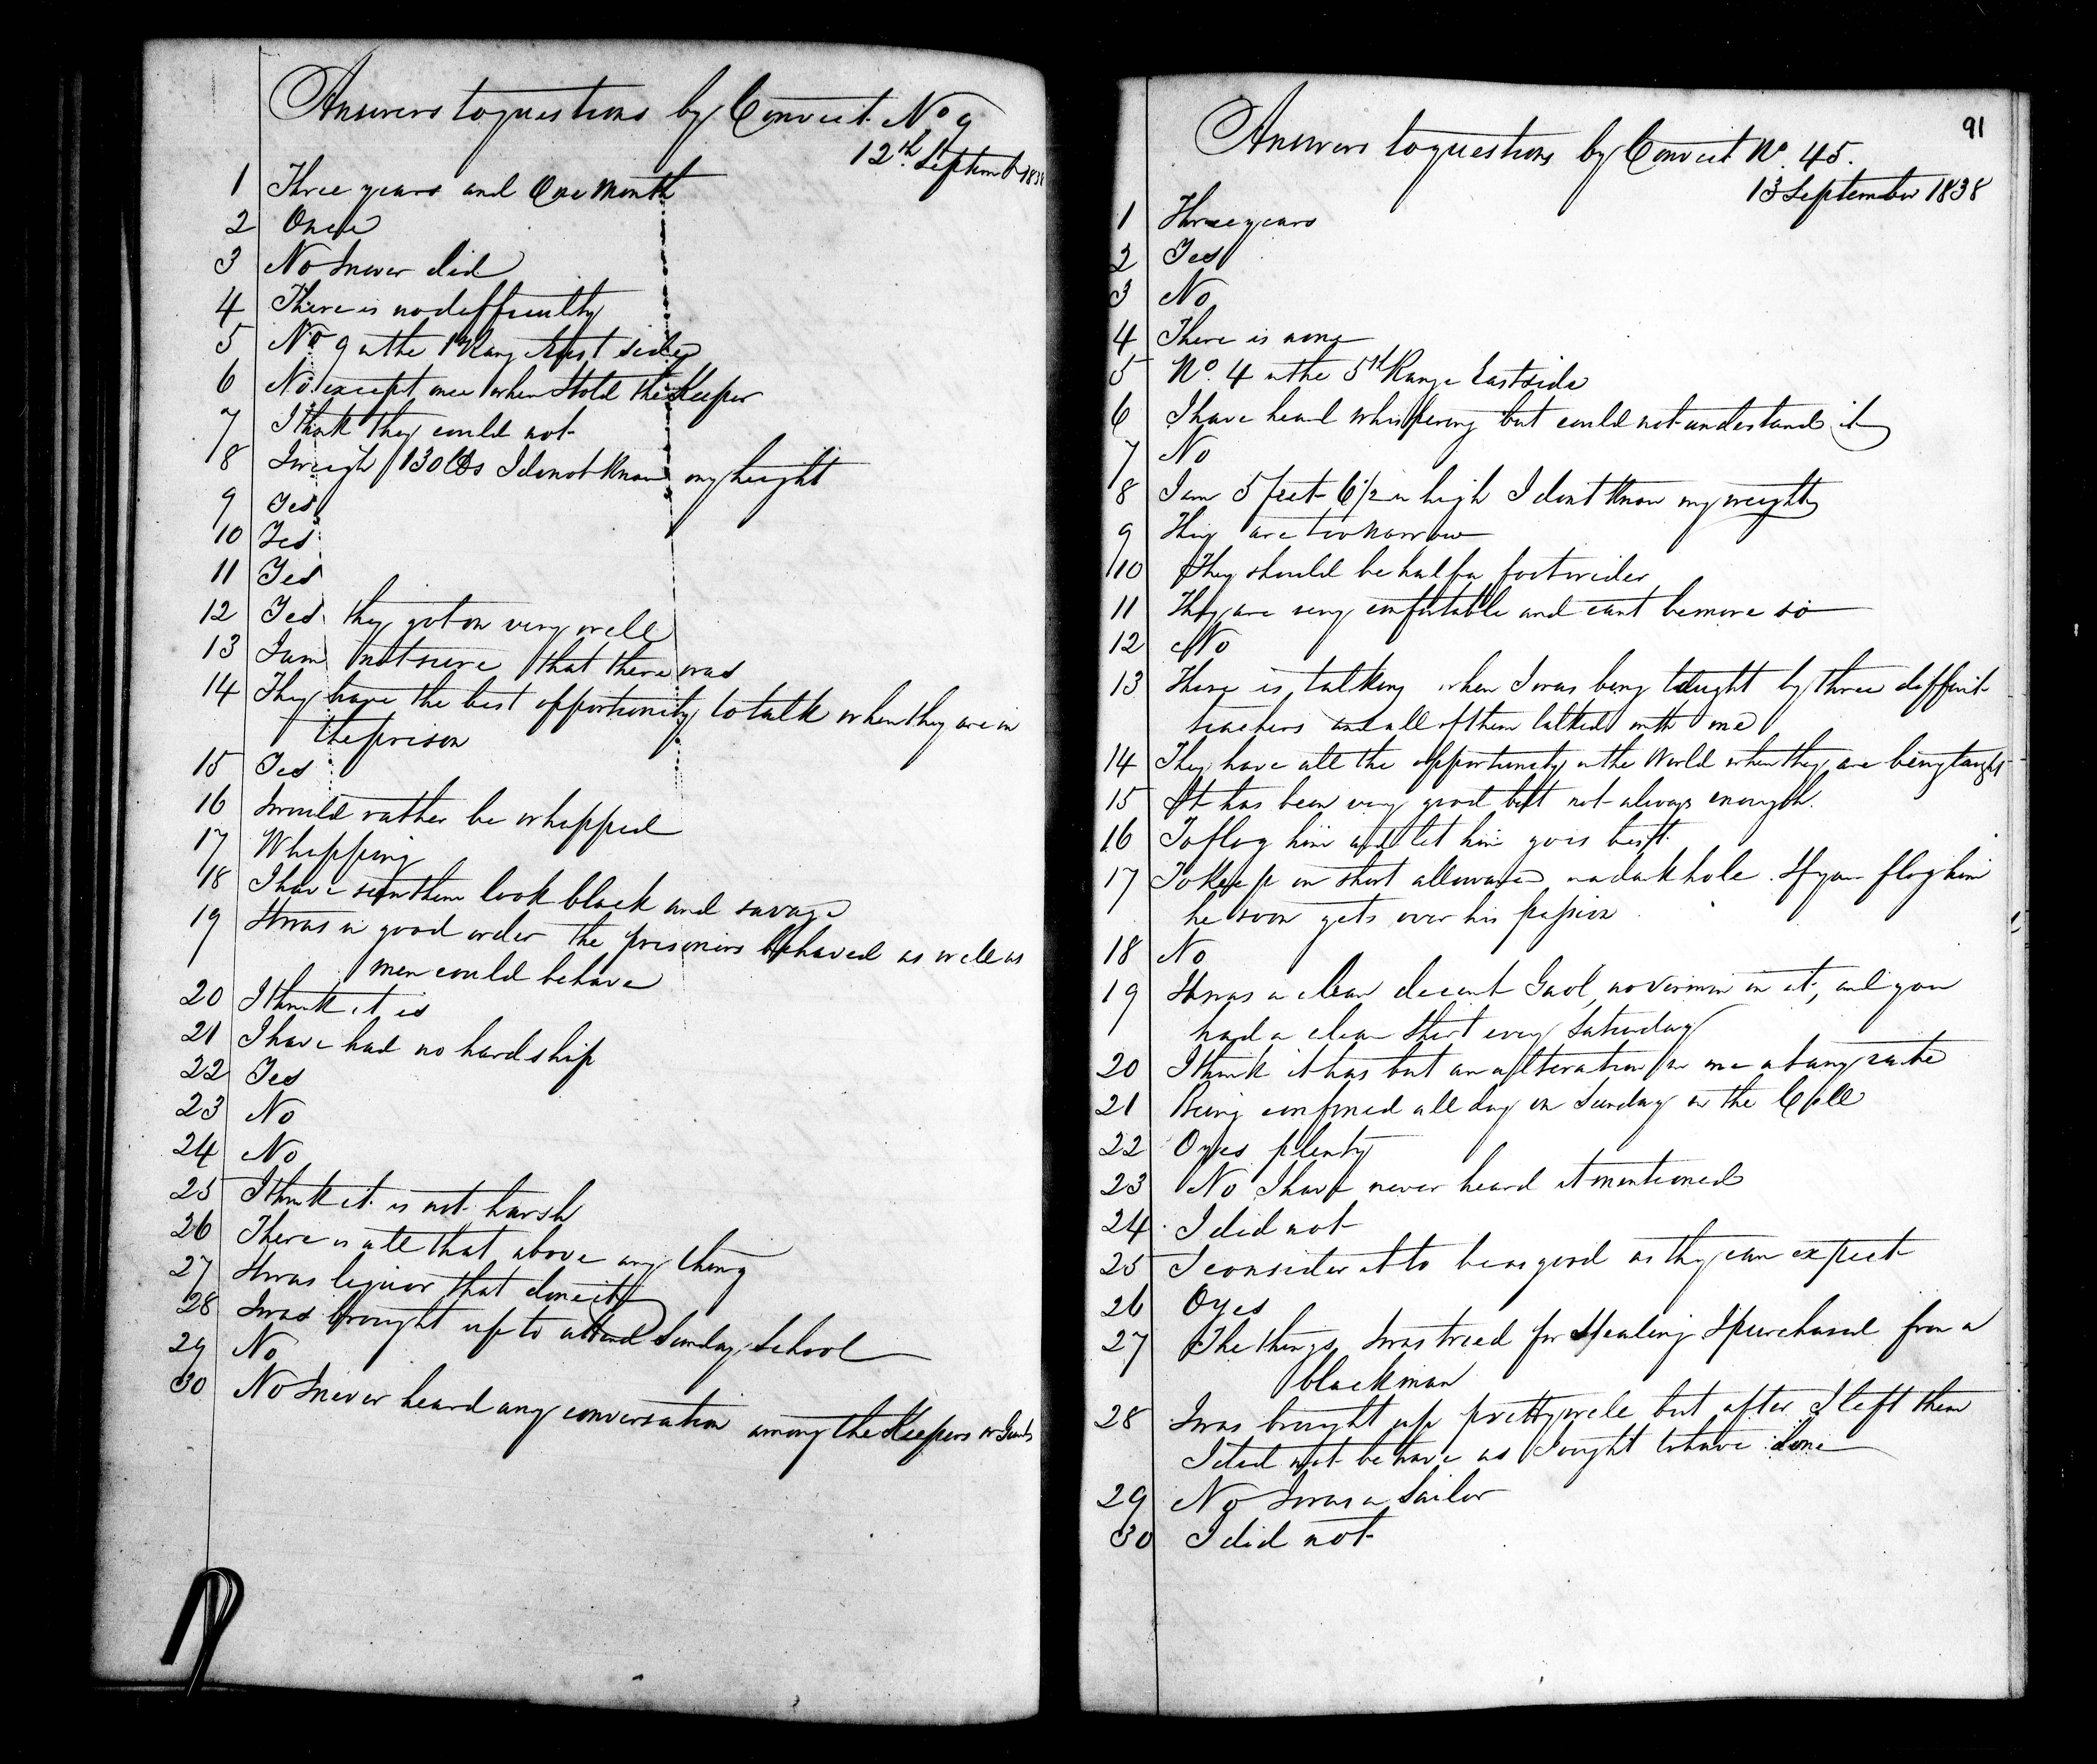 Answers to questions by Convict No 9
12th September 1838
1 Three years and One Month
2 Once
3 No I never did
4 There is no difficulty
5 No 9 in the 1st Rang side
6 No except once when I told the Keeper
7 I think they could not
8 I weigh 130 lbs I do not know my height
9 Yes
10 Yes
11 Yes
12 Yes they got on very well
13 I am not sure that there was
14 They have the best opportunity to talk when they are in
the prison
15 Yes
16 I would rather be whipped
17 Whipping
18 I have seen them look black and savage
19 It was in good order the prisoners behaved as well as
men could behave
20 I think it is
21 I have had no hardship
22 Yes
23 No
24 No
25 I think it is not harsh
26 There is all that above any thing
27 It was liquor that done it
28 I was brought up to attend Sunday School
29 No
30 No I never heard any conversation among the Keepers or Guards
91
Answers to questions by Convict No. 45.
13 September 1838
1 Three years
2 Yes
3 No
4 There is none
5 No. 4 in the 5th Range East side
6 I have heard whispering but could not understand it
7 No
8 I am 5 feet 6 1/2 in high I dont know my weight
9 They are too narrow
10 They should be half a foot wider
11 They are very comfortable and cant be more so
12 No
13 There is talking when I was being taught by three different
teachers and all of them talked with me
14 They have all the opportunity in the World when they are being taught
15 It has been very good but not always enough.
16 To flog him and let him go is best.
17 To keep on short allowance in a dark hole. If you flog him
he soon gets over his passion
18 No
19 It was a clean decent Gaol, no vermin in it, and you
had a clean Shirt every Saturday
20 I think it has but an alteration in me at any rate
21 Being confined all day on Sunday in the Cell
22 O yes plenty
23 No I have never heard it mentioned
24 I did not
25 I consider it to be as good as they can expect
26 O yes
27 The things I was tried for Stealing I purchased from a
blackman
28 I was brought up pretty well but after I left them
I did not behave as I ought to have done
29 No I was a Sailor
30 I did not